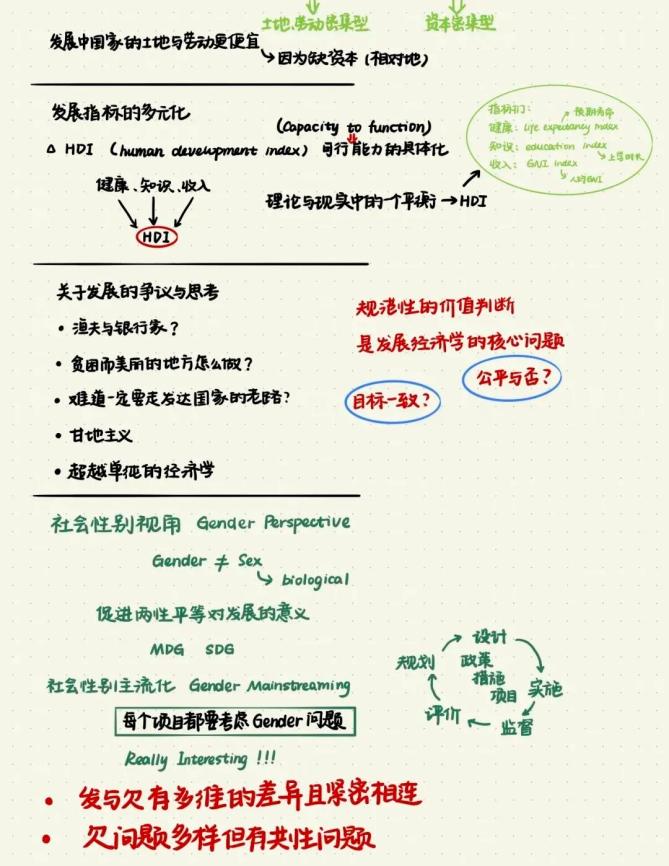 土地、劳动密集型
资本密集型
发展中国家的土地与劳动更便宜
因为缺资本（相对地）
发展指标的多元化
(Capacity to function)
△ HDI (human development index) 可行能力的具体化
健康、知识、收入
HDI
理论与现实中的一个平衡→HDI
指标们：
预期寿命
健康：life expectancy index
知识：education index
上学时长
收入：GNI index
人均GNI
关于发展的争议与思考
• 渔夫与银行家？
• 贫困而美丽的地方怎么做？
• 难道一定要走发达国家的老路？
• 甘地主义
• 超越单维的经济学
规范性的价值判断
是发展经济学的核心问题
公平与否？
目标一致？
社会性别视角 Gender Perspective
Gender ≠ Sex
biological
促进两性平等对发展的意义
MDG SDG
社会性别主流化 Gender Mainstreaming
每个项目都要考虑Gender问题
Really Interesting !!!
设计
规划
政策
措施
项目
实施
评价
监督
• 发与欠有多维的差异且紧密相连
• 欠问题多样但有共性问题